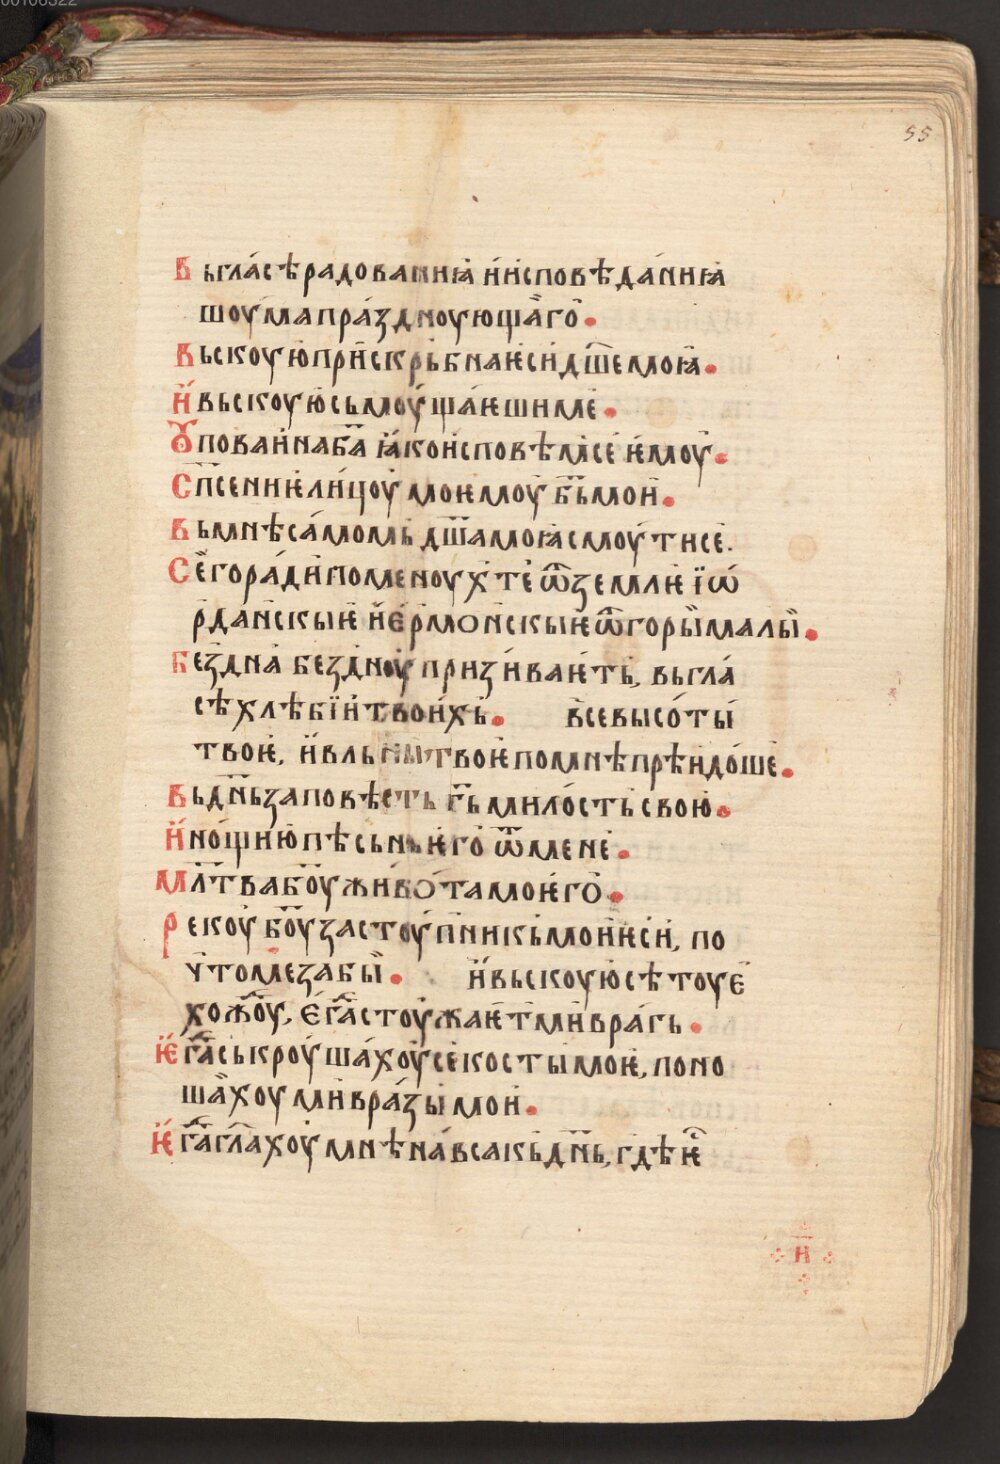 00108322
55
Въ гла́сѣ радованиꙗ и҆ и҆сповѣда́ниꙗ
шоу́ма пра́зднꙋющаго.
Въскоую прискрьбна ѥси дш҃е моꙗ.
И҆ въскоую съмоу́щаѥши ме.
Ꙋповаи на ба҃ ꙗко исповѣмсе ѥмоу.
Сп҃сениѥ лицоу моѥмоу бь҃ мои.
Въ мнѣ са́момь дш҃а моꙗ смоу́тисе.
Сего ра́ди поменоухте ѿ землѥ їѡ
рданскыѥ и ѥрмонскыѥ ѿ горы малы.
Бездна бездноу призиваѥть, въ гла́
сѣ хлѣбїи твоихь. все высо́ты
твоѥ, и вльны твоѥ по мнѣ прѣидо́ше.
Въ дн҃ь заповѣсть гь҃ милость свою.
И нощию пѣснь ѥго ѿ мене.
Мл҃тва боу҃ живота моѥго.
Рекоу боу҃ застоу́пникь мои ѥси, по
что ме забы. и въскоую сѣтоує
хождоу, єгда стоужаѥт ми врагь.
Ѥгда съкроуша́хоусе кости моѥ, поно
шахоу ми врази мои.
Ѥгда гла҃хоу мнѣ на всакь дн҃ь, гдѣ ѥс
н҃